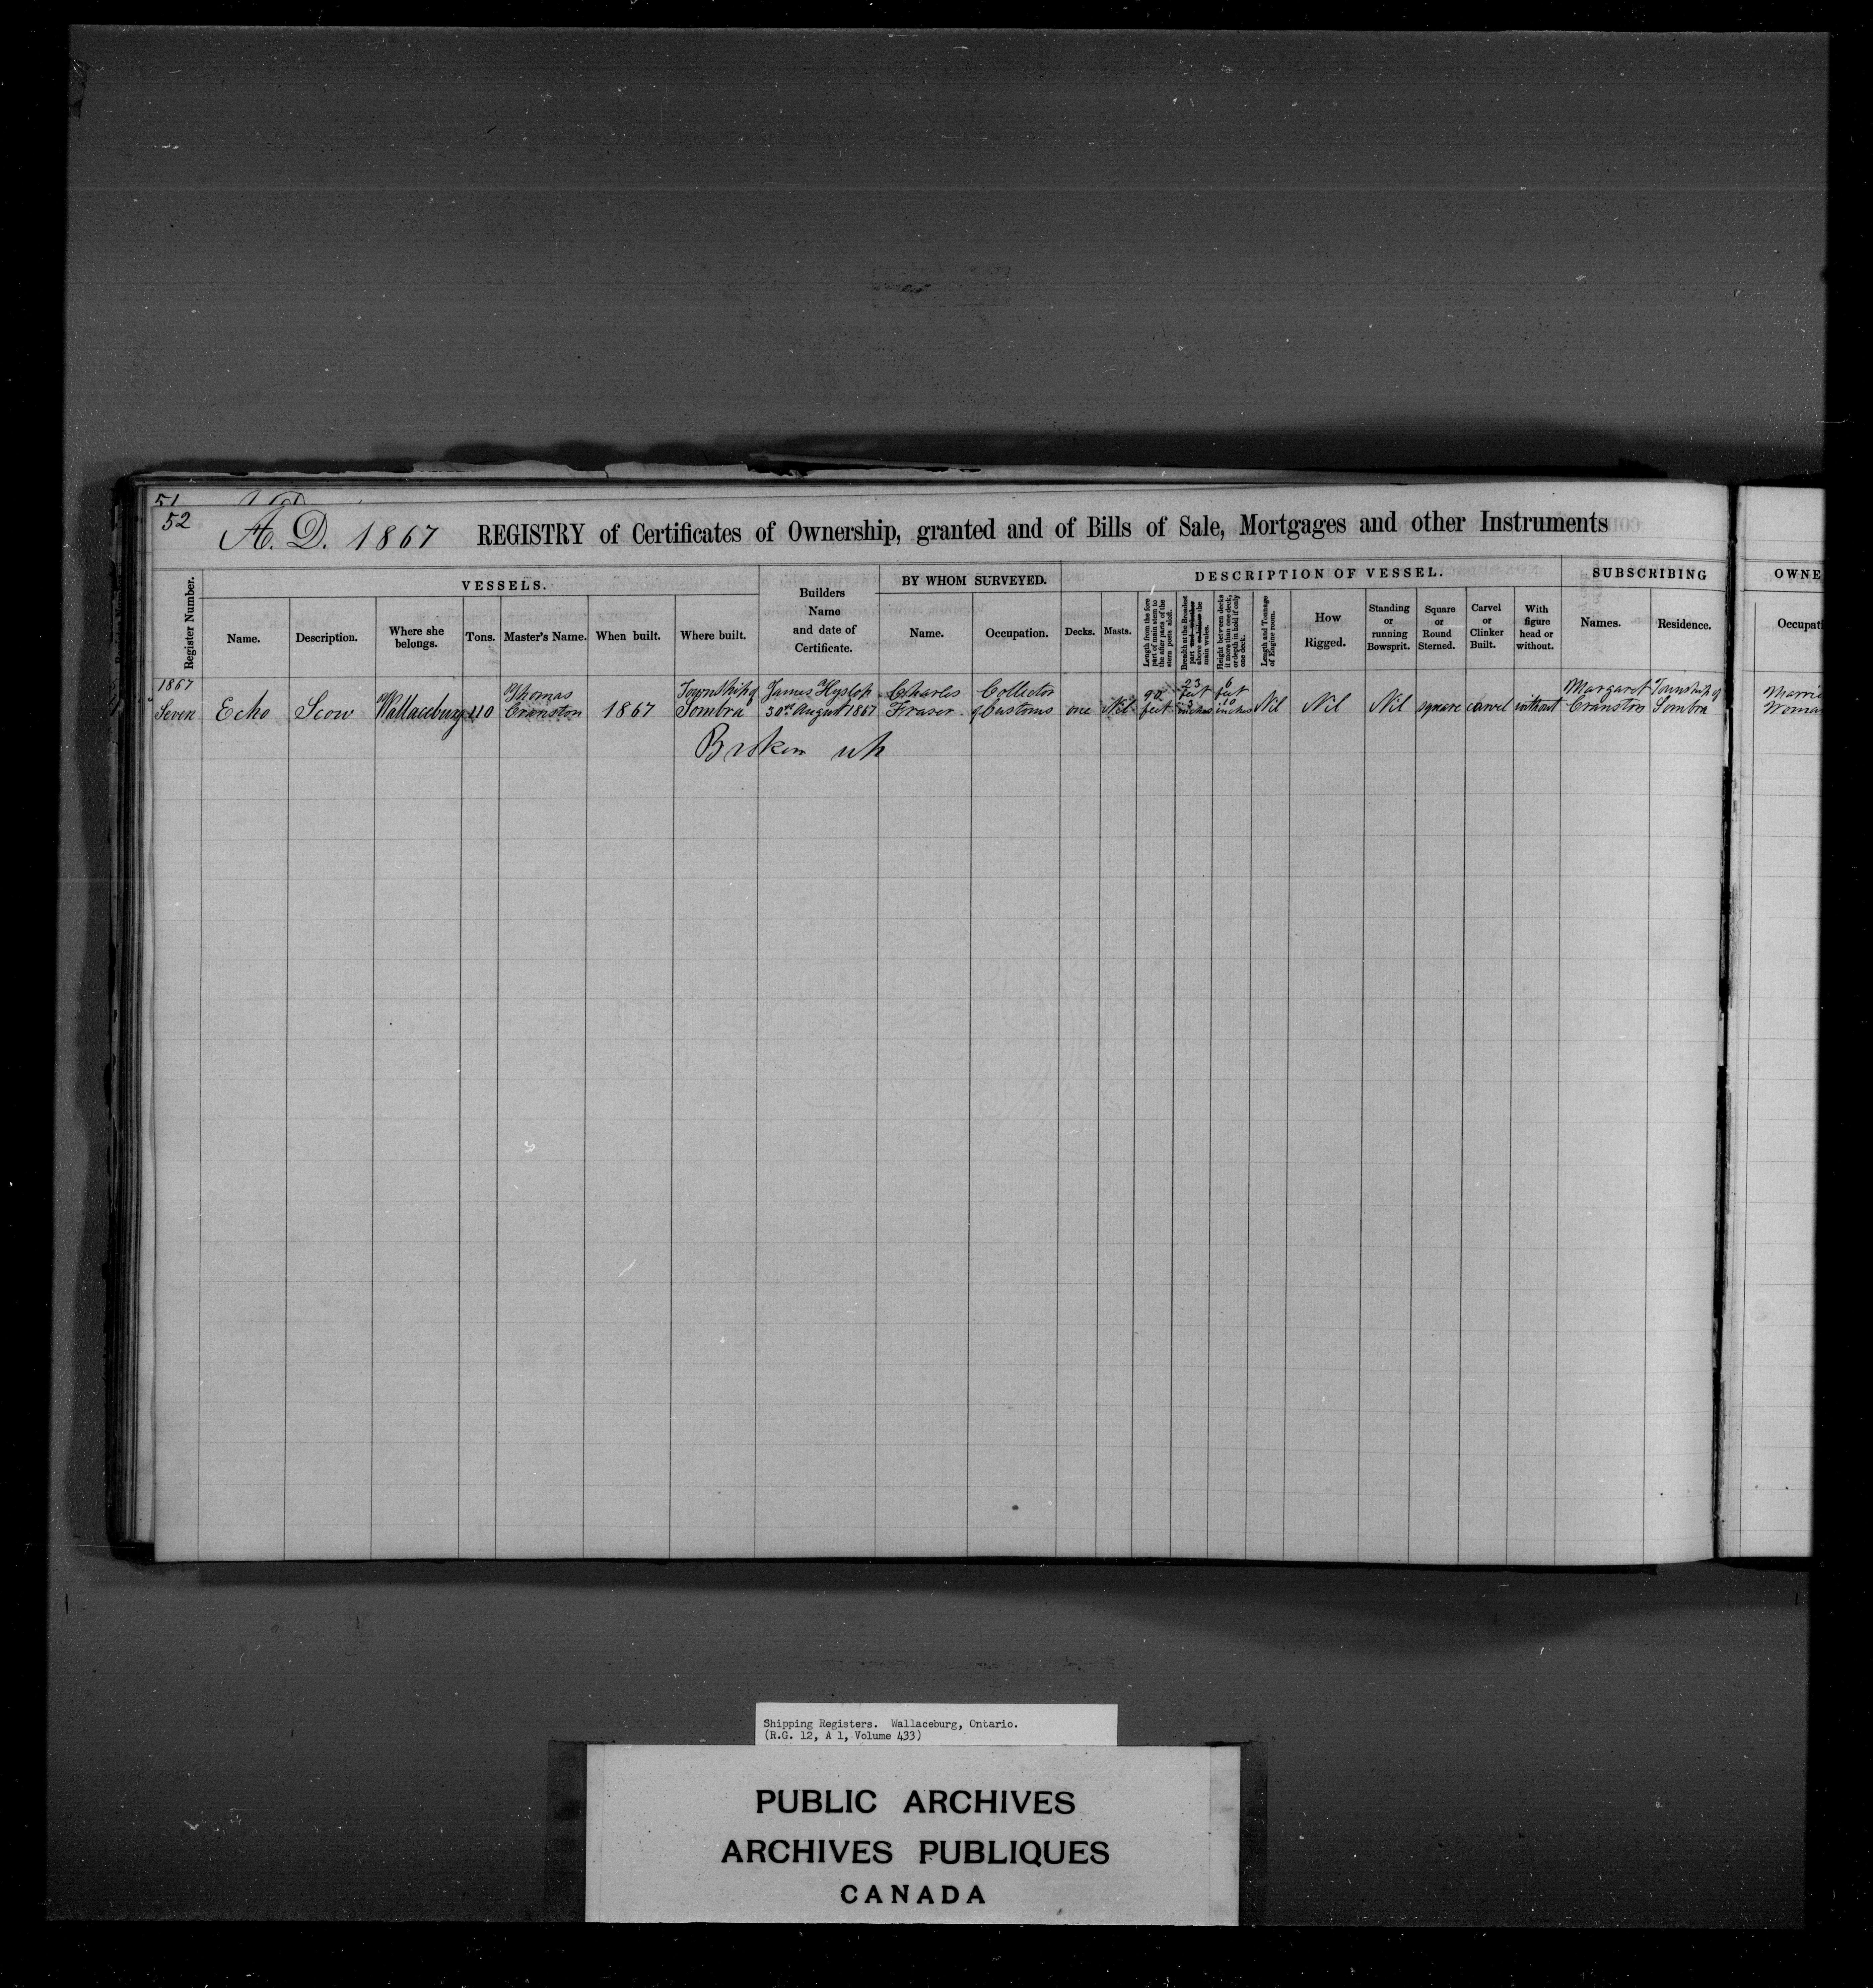 51
52
A. D. 1867 REGISTRY of Certificates of Ownership, granted and of Bills of Sale, Mortgages and other Instruments
Register Number.
VESSELS.
Name.
Description.
Where she belongs.
Tons.
Master's Name.
When built.
Where built.
Builders
Name
and date of
Certificate.
BY WHOM SURVEYED.
Name.
Occupation.
DESCRIPTION OF VESSEL.
Decks.
Masts.
Length from the fore
part of main stem to
the after part of the
stern posts aloft.
Breadth at the Broadest
part
above or below the
main wales.
Height between decks
if more than one deck,
or depth in hold if only
one deck.
Length and Tonnage
of Engine room.
How
Rigged.
Standing
or
running
Bowsprit.
Square
or
Round
Sterned.
Carvel
or
Clinker
Built.
With
figure
head or
without.
SUBSCRIBING
Names.
Residence.
OWNE
Occupati
1867
Seven
Echo
Scow
Wallaceburg
110
Thomas
Cranston
1867
Township of
Sombra
James Hyslop
30th August 1867
Charles
Fraser
Collector
of Customs
one
Nil
90
feet
23
feet
3
inches
6
feet
10
inches
Nil
Nil
Nil
square
carvel
without
Margaret
Cranston
Township of
Sombra
Marrie
Woma
Broken up
Shipping Registers. Wallaceburg, Ontario.
(R.G. 12, A 1, Volume 433)
PUBLIC ARCHIVES
ARCHIVES PUBLIQUES
CANADA